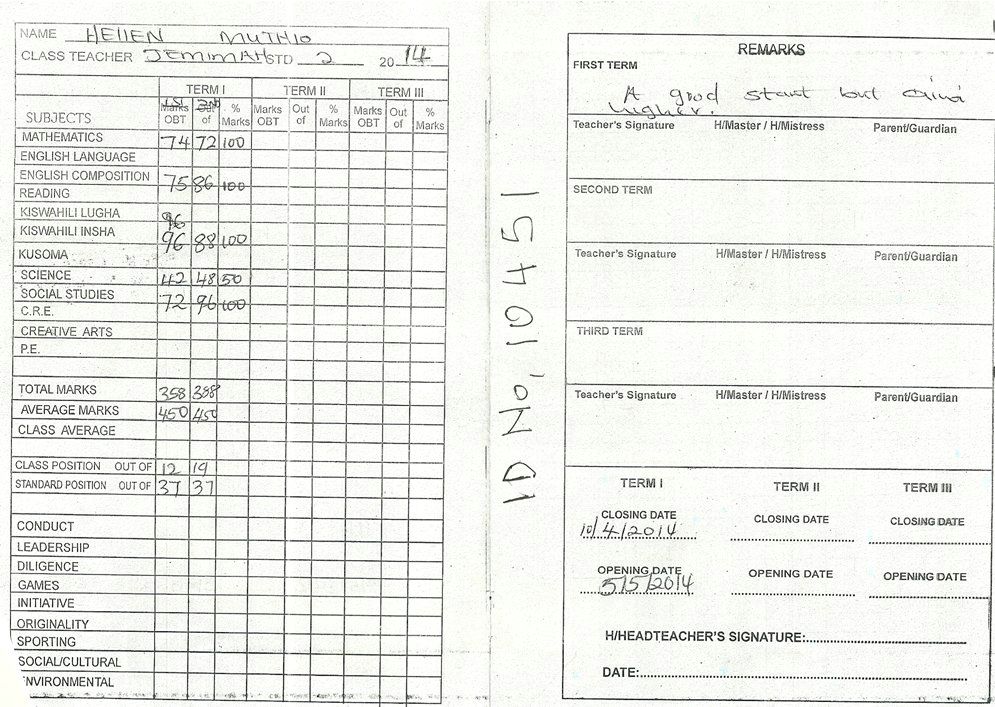 NAME HELLEN MUTHIO
CLASS TEACHER JEMIMAH STD 2 2014
TERM I TERM II TERM III
SUBJECTS 1ST Marks OBT 2ND Out of % Marks Marks OBT Out of % Marks Marks OBT Out of % Marks
MATHEMATICS 74 72 100
ENGLISH LANGUAGE
ENGLISH COMPOSITION 75 86 100
READING
KISWAHILI LUGHA 96
KISWAHILI INSHA 96 88 100
KUSOMA
SCIENCE 42 48 50
SOCIAL STUDIES 72 96 100
C.R.E.
CREATIVE ARTS
P.E.
TOTAL MARKS 358 388
AVERAGE MARKS 450 450
CLASS AVERAGE
CLASS POSITION OUT OF 12 19
STANDARD POSITION OUT OF 37 37
CONDUCT
LEADERSHIP
DILIGENCE
GAMES
INITIATIVE
ORIGINALITY
SPORTING
SOCIAL/CULTURAL
NVIRONMENTAL
ID No. 1040451
REMARKS
FIRST TERM
A good start but aim
higher.
Teacher's Signature H/Master / H/Mistress Parent/Guardian
SECOND TERM
Teacher's Signature H/Master / H/Mistress Parent/Guardian
THIRD TERM
Teacher's Signature H/Master / H/Mistress Parent/Guardian
TERM I TERM II TERM III
CLOSING DATE CLOSING DATE CLOSING DATE
10/4/2014
OPENING DATE OPENING DATE OPENING DATE
5/5/2014
H/HEADTEACHER'S SIGNATURE:
DATE: